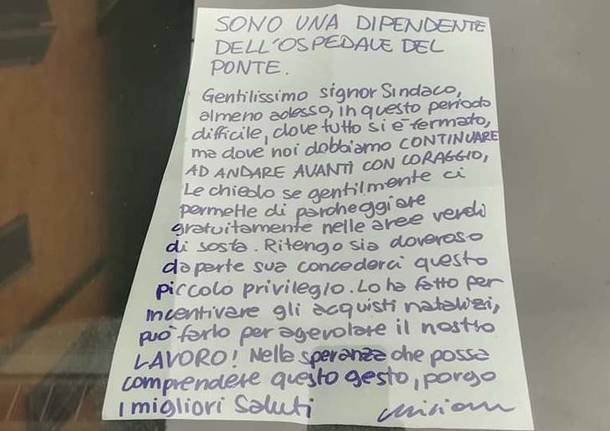 SONO UNA DIPENDENTE
DELL'OSPEDALE DEL
PONTE.
Gentilissimo signor Sindaco,
almeno adesso, in questo periodo
difficile, dove tutto si è fermato,
ma dove noi dobbiamo CONTINUARE
AD ANDARE AVANTI CON CORAGGIO,
Le chiedo se gentilmente ci
permette di parcheggiare
gratuitamente nelle aree verdi
di sosta. Ritengo sia doveroso
da parte sua concederci questo
piccolo privilegio. Lo ha fatto per
incentivare gli acquisti natalizi,
può farlo per agevolare il nostro
LAVORO! Nella speranza che possa
comprendere questo gesto, porgo
i migliori saluti